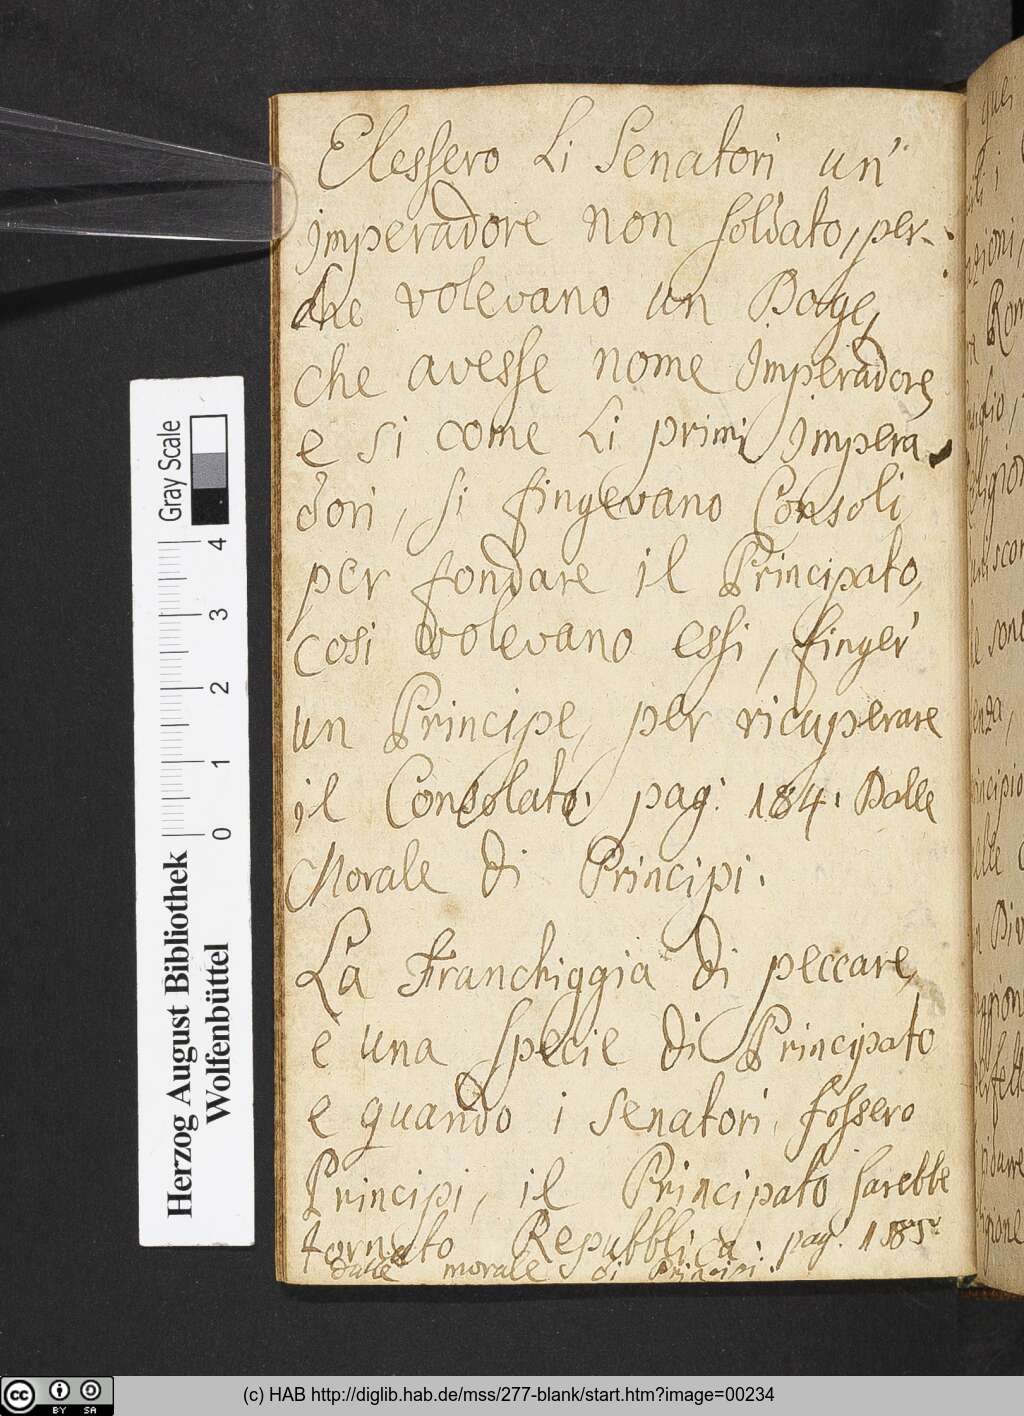 Elessero Li Senatori un'
imperadore non soldato, per-
che volevano un Doge,
che avesse nome Imperadore,
e si come Li primi Impera
dori, si fingevano Consoli
per fondare il Principato,
cosi volevano essi, finger'
un Principe, per ricuperare
il Consolato. pag: 184. Dalle
Morale di Principi.
La Franchiggia di peccare,
è una specie di Principato
e quando i Senatori, fossero
Principi, il Principato sarebbe
tornato Repubblica: pag. 185.
dalle morale di Principi.
Gray Scale
4
3
2
1
0
Herzog August Bibliothek
Wolfenbüttel
cc BY SA
(c) HAB http://diglib.hab.de/mss/277-blank/start.htm?image=00234